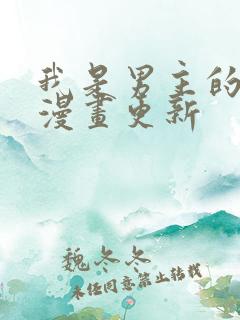 我是男主的
漫畫更新
魏冬冬
未任同意禁止转载